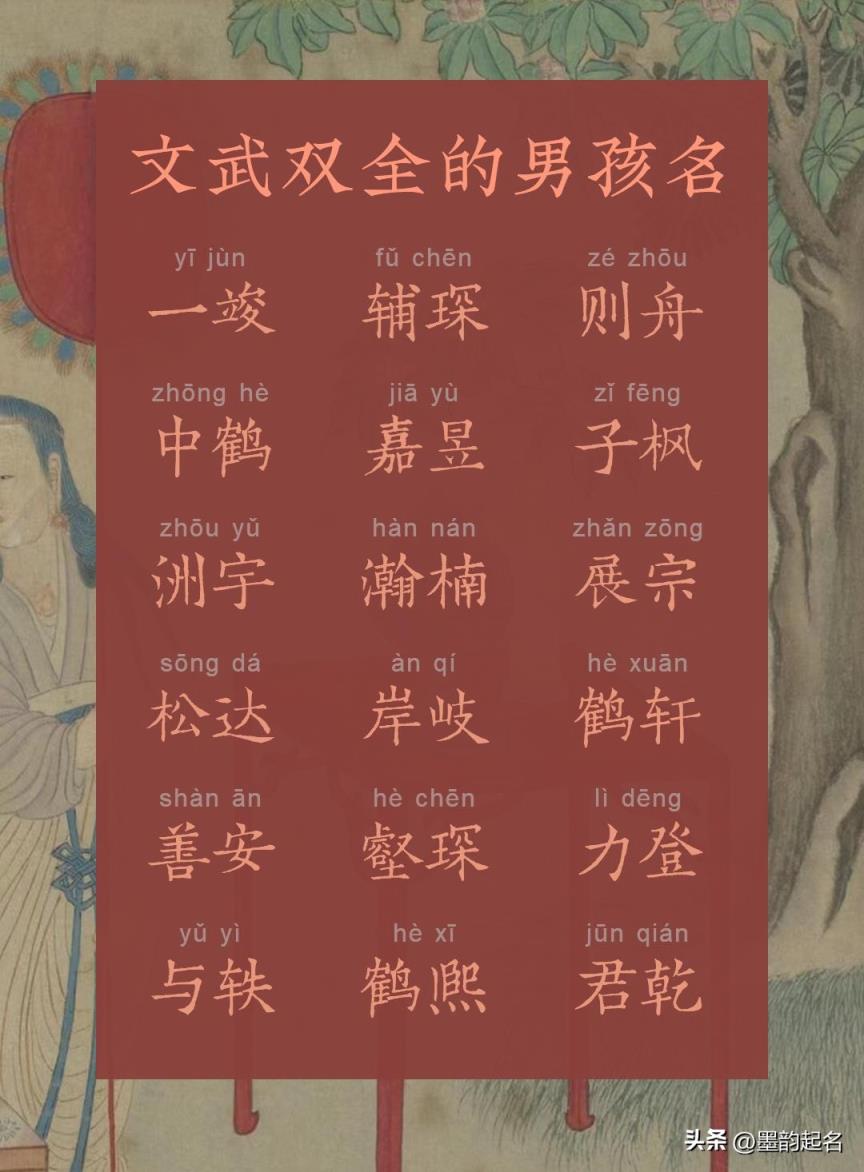 文武双全的男孩名
yī jùn fǔ chēn zé zhōu
一竣 辅琛 则舟
zhōng hè jiā yù zǐ fēng
中鹤 嘉昱 子枫
zhōu yǔ hàn nán zhǎn zōng
洲宇 瀚楠 展宗
sōng dá àn qí hè xuān
松达 岸岐 鹤轩
shàn ān hè chēn lì dēng
善安 壑琛 力登
yǔ yì hè xī jūn qián
与轶 鹤熙 君乾
头条 @墨韵起名